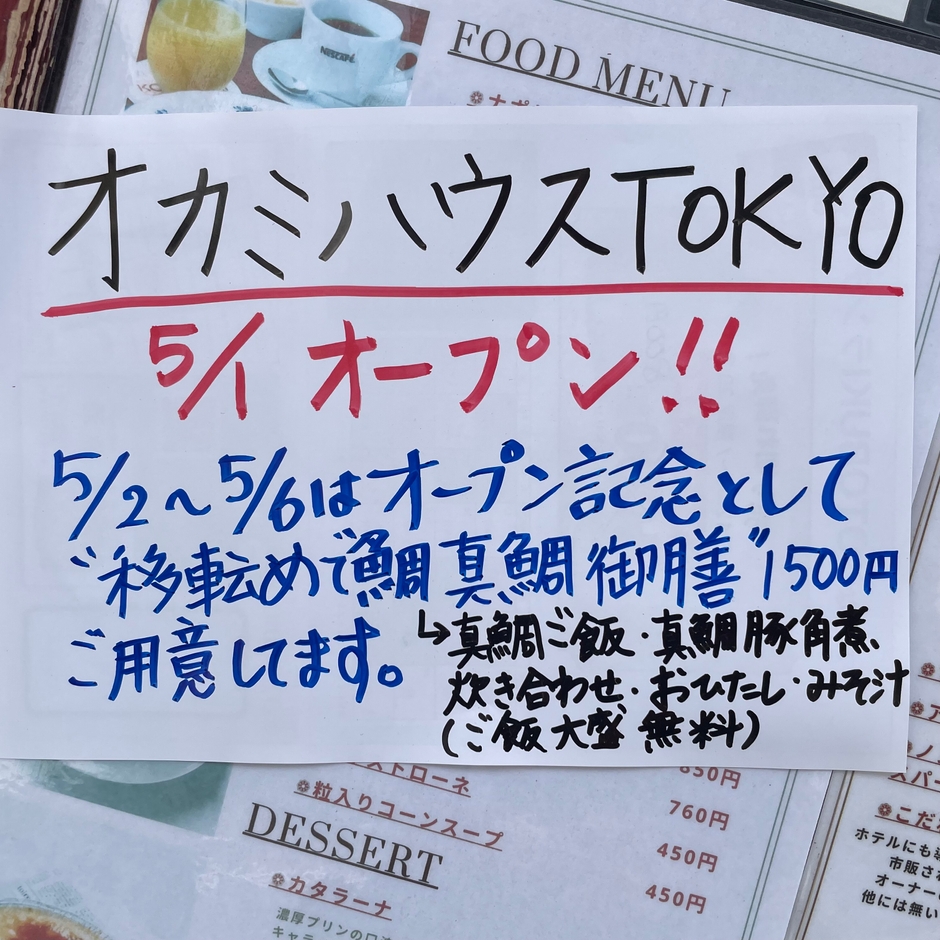 NESCAFÉ
FOOD MENU
オカミハウスTOKYO
5/1 オープン!!
5/2〜5/6はオープン記念として
"移転めで鯛 真鯛御膳" 1500円
ご用意してます。
↳真鯛ご飯・真鯛豚角煮、
炊き合わせ・おひたし・みそ汁
(ご飯大盛 無料)
ストローネ
850円
粒入りコーンスープ
760円
DESSERT
450円
カタラーナ
450円
濃厚プリンの口
キャラ
こだ
ホテルにも
市販さ
オーナーの
他には無い